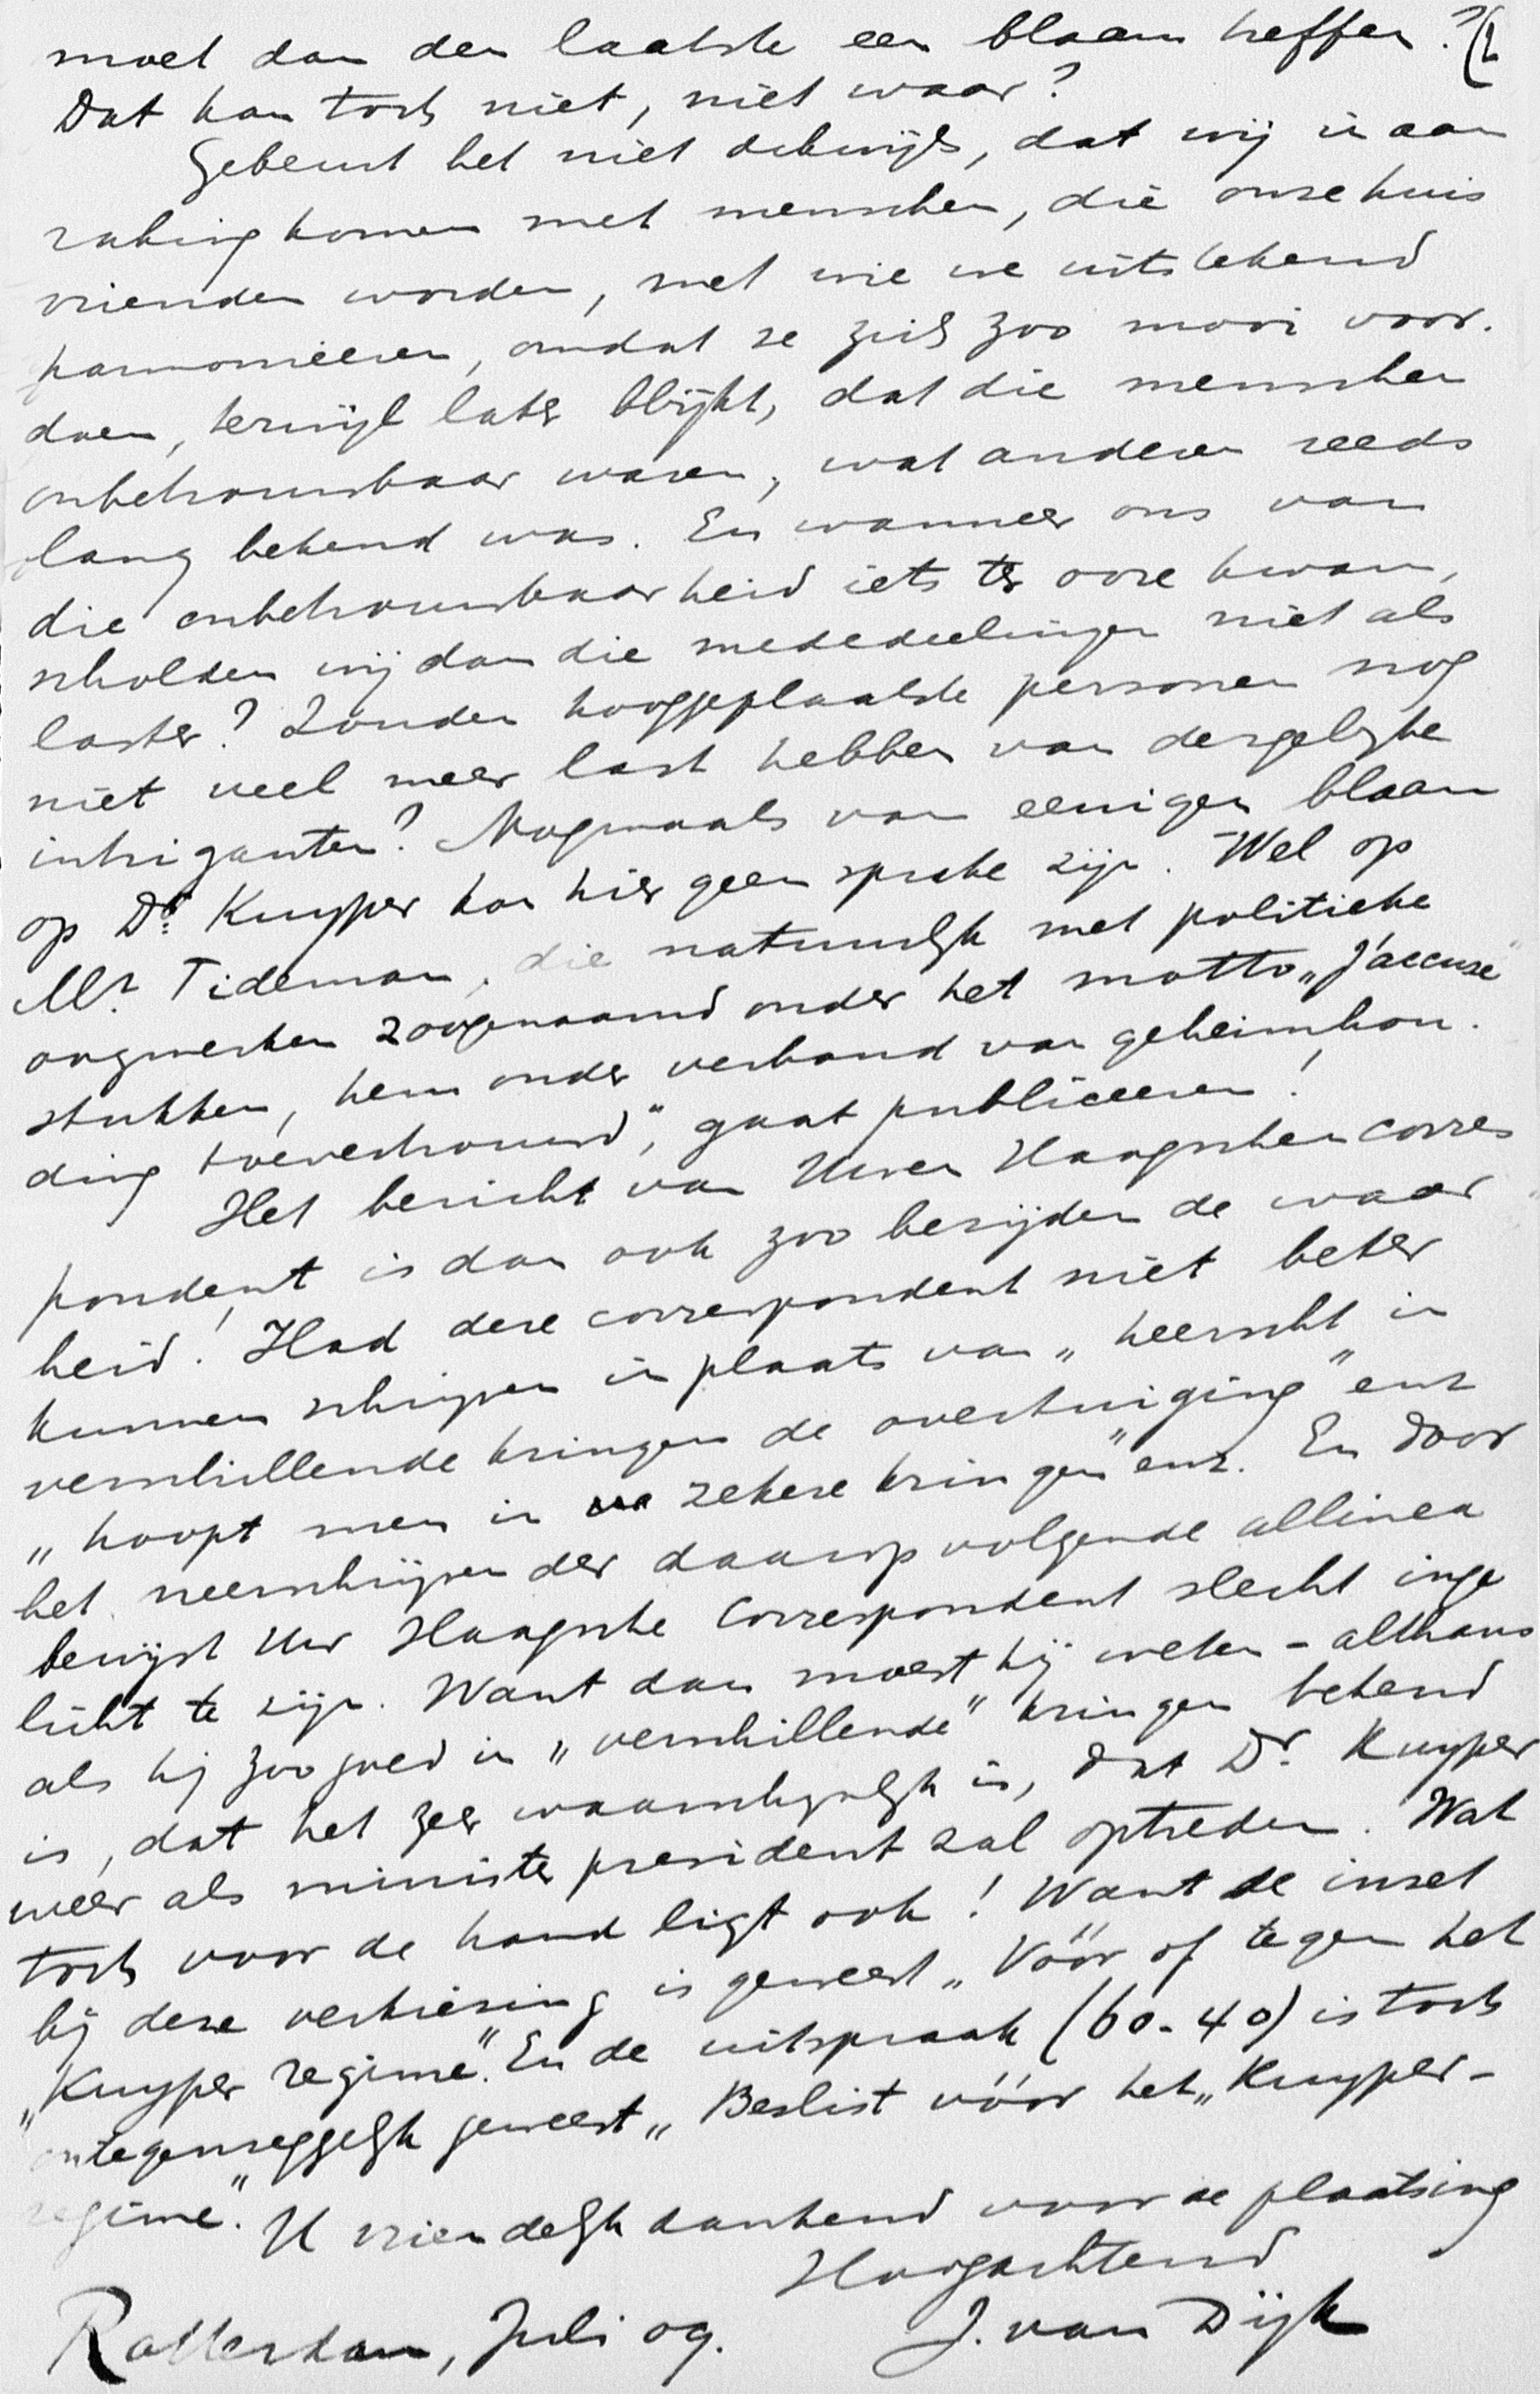 moet dan den laatste een blaam treffen? (2
Dat kan toch niet, niet waar?
Gebeurt het niet dikwijls, dat wij in aan
raking komen met menschen, die onze huis
vrienden worden, met wie we uitstekend
harmonieeren, omdat ze zich zoo mooi voor-
doen, terwijl later blijkt, dat die menschen
onbetrouwbaar waren, wat anderen reeds
lang bekend was. En wanneer ons van
die onbetrouwbaarheid iets ter oore kwam,
scholden wij dan die mededeelingen niet als
laster? Zouden hooggeplaatste personen nog
niet veel meer last hebben van dergelijke
intriganten? Nogmaals van eenigen blaam
op Dr. Kuyper kan hier geen sprake zijn. Wel op
Mr. Tideman, die natuurlijk met politieke
oogmerken zoogenaamd onder het motto „J'accuse"
stukken, hem onder verband van geheimhou-
ding toevertrouwd", gaat publiceeren!
Het bericht van Uwen Haagschen corres
pondent is dan ook zoo bezijden de waar
heid! Had deze correspondent niet beter
kunnen schrijven in plaats van „heerscht in
verschillende kringen de overtuiging" enz
„hoopt men in zekere kringen" enz. En door
het neerschrijven der daaropvolgende allinea
bewijst Uw Haagsche Correspondent slecht inge
licht te zijn. Want dan moest hij weten - althans
als hij zoo goed in „verschillende" kringen bekend
is, dat het zeer waarschijnlijk is, dat Dr. Kuyper
weer als minister president zal optreden. Wat
toch voor de hand ligt ook! Want de inzet
bij deze verkiezing is geweest „Vóór of tegen het
„Kuyper regime". En de uitspraak (60-40) is toch
ontegenzeggelijk geweest „Beslist vóór het „Kuyper-
regime". U vriendelijk dankend voor de plaatsing
Hoogachtend
Rotterdam, Juli 09. J. van Dijk